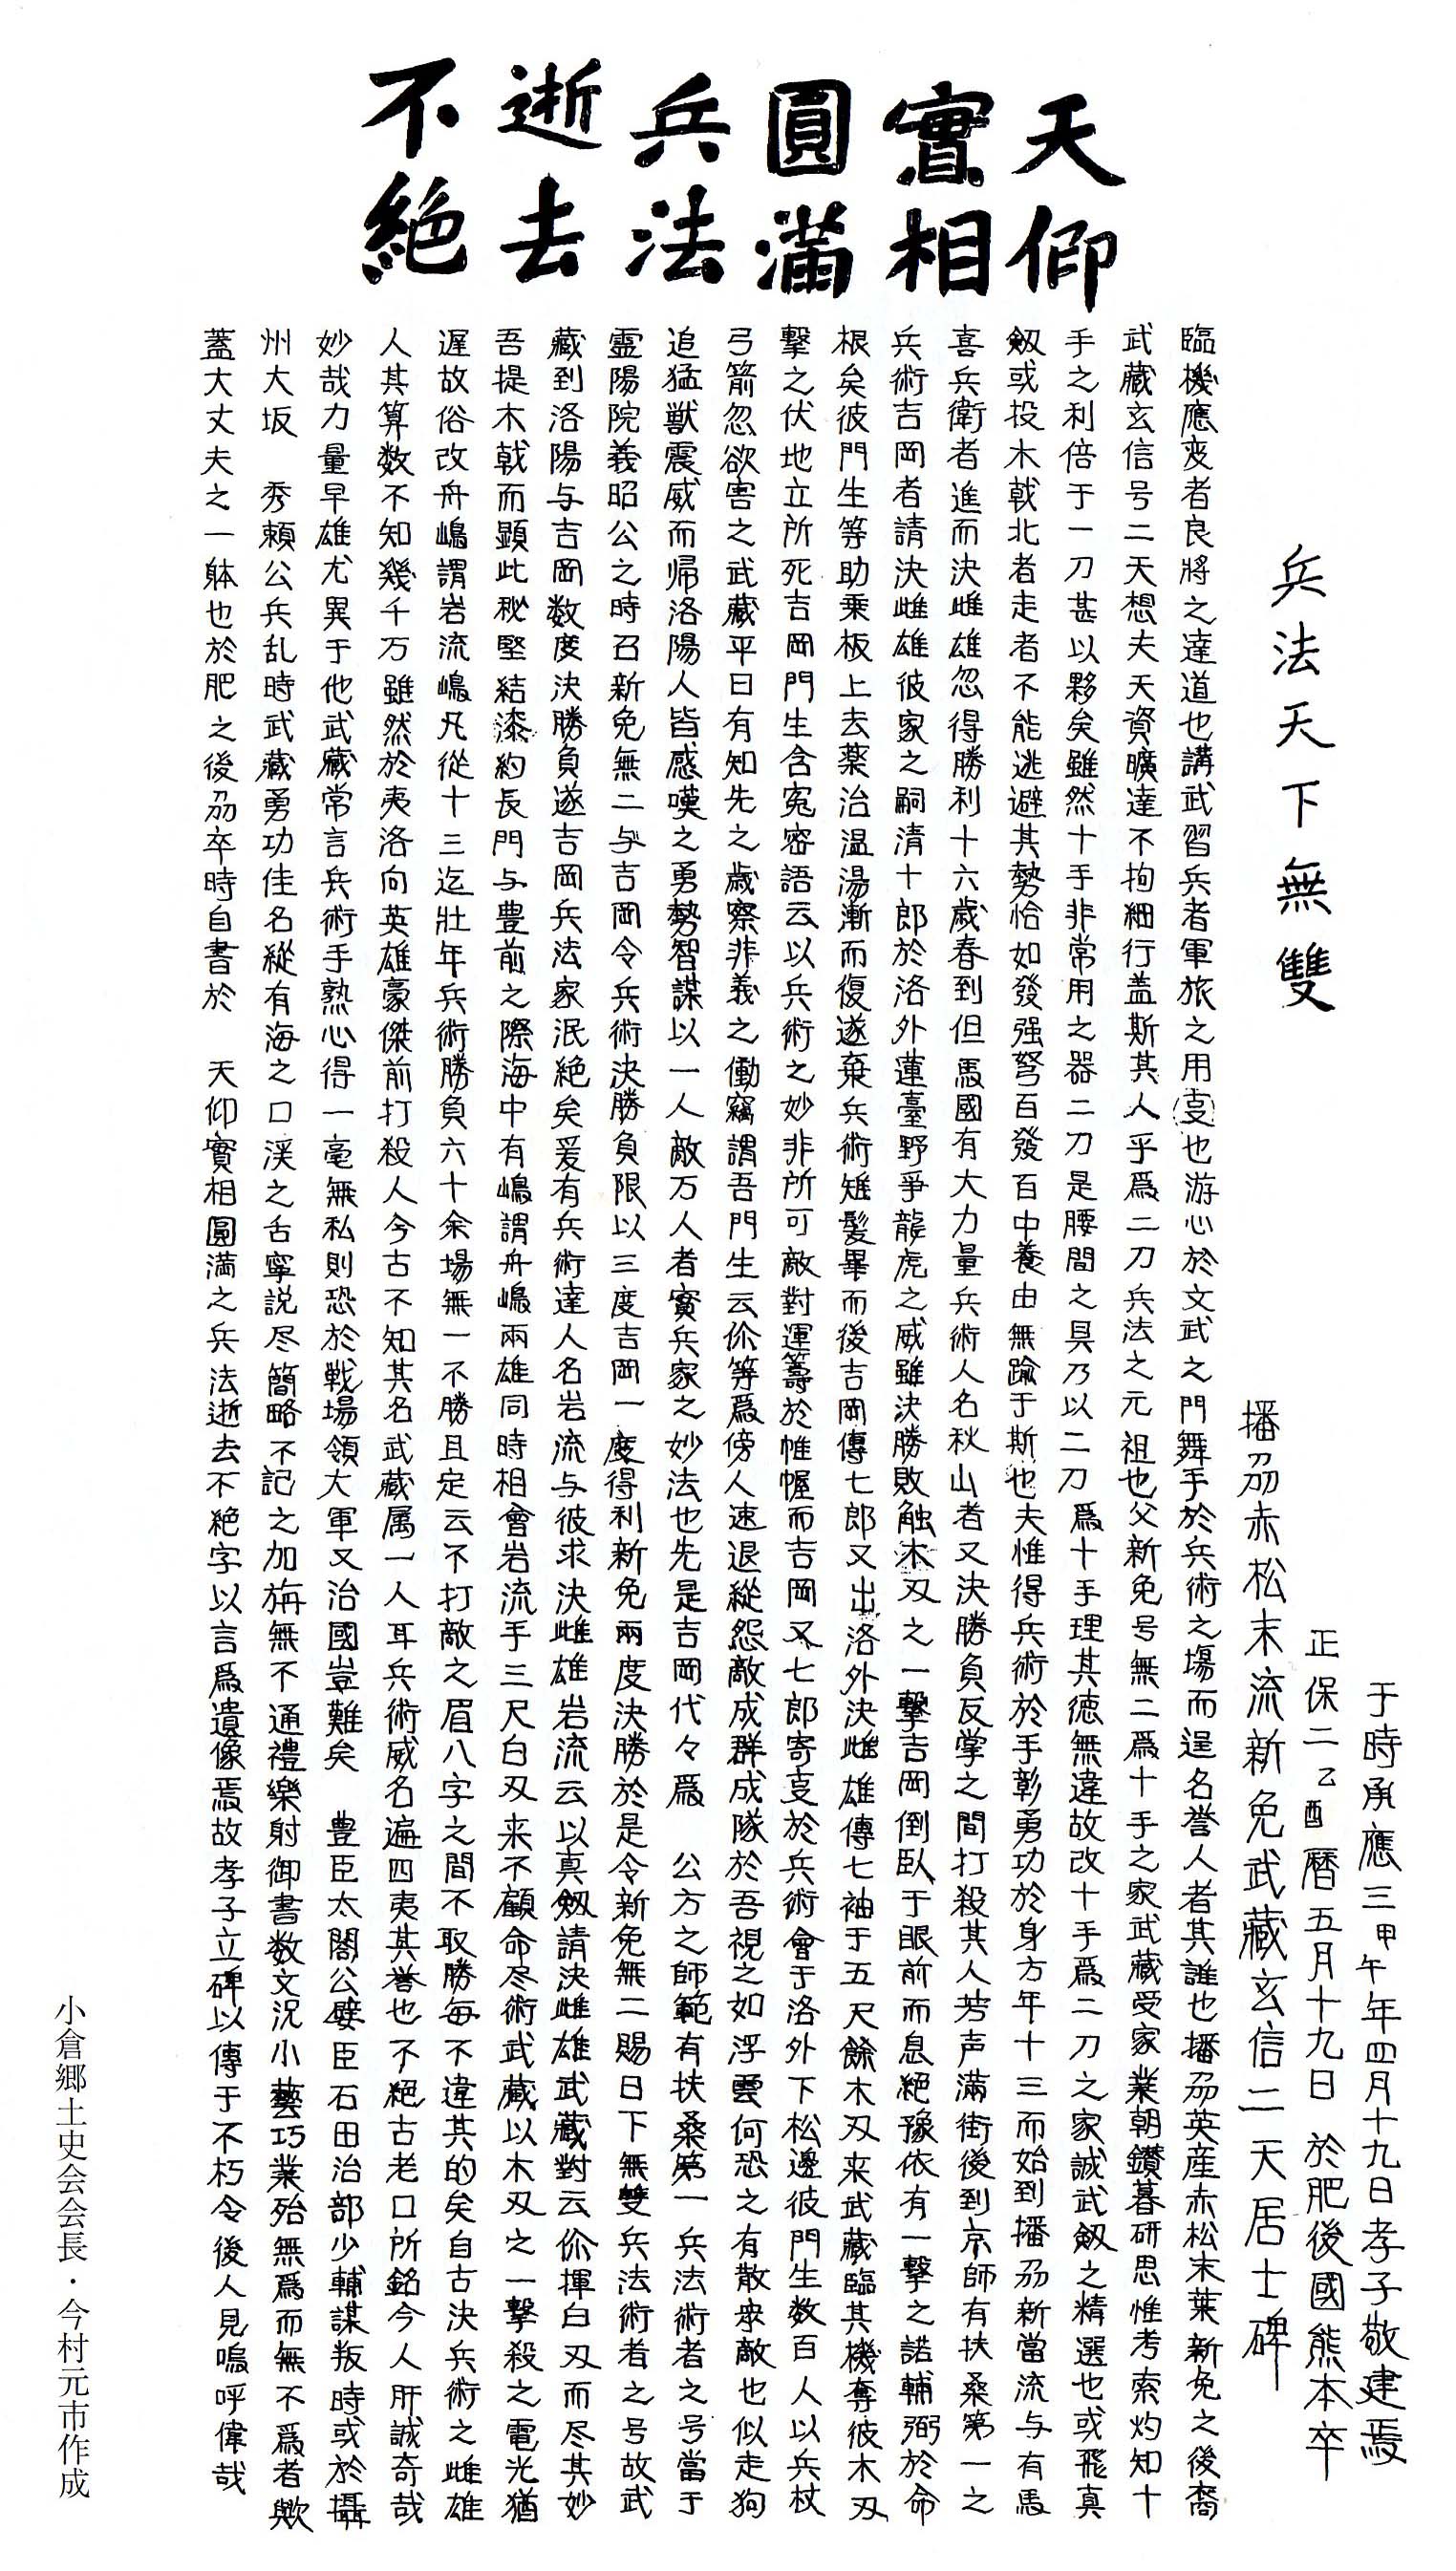 天仰
實相
圓満
兵法
逝去
不絶
于時承應三甲午年四月十九日孝子敬建焉
正保二乙酉暦五月十九日 於肥後國熊本卒
播刕赤松末流新免武藏玄信二天居士碑
兵法天下無雙
臨機應変者良將之達道也講武習兵者軍旅之用亊也游心於文武之門舞手於兵術之場而逞名誉人者其誰也播刕英産赤松末葉新免之後裔
武藏玄信号二天想夫天資曠達不拘細行盖斯其人乎爲二刀兵法之元祖也父新免号無二爲十手之家武藏受家業朝鑚暮研思惟考索灼知十
手之利倍于一刀甚以夥矣雖然十手非常用之器二刀是腰間之具乃以二刀爲十手理其徳無違故改十手爲二刀之家誠武劔之精選也或飛真
劔或投木戟北者走者不能逃避其勢恰如發强弩百發百中養由無踰于斯也夫惟得兵術於手彰勇功於身方年十三而始到播刕新當流与有馬
喜兵衛者進而決雌雄忽得勝利十六歳春到但馬國有大力量兵術人名秋山者又決勝負反掌之間打殺其人芳声滿街後到京師有扶桑第一之
兵術吉岡者請決雌雄彼家之嗣清十郎於洛外蓮臺野爭龍虎之威雖決勝敗触木刄之一擊吉岡倒臥于眼前而息絶豫依有一擊之諾輔弼於命
根矣彼門生等助乗板上去薬治温湯漸而復遂棄兵術雉髪畢而後吉岡傳七郎又出洛外決雌雄傳七袖于五尺餘木刄来武藏臨其機奪彼木刄
擊之伏地立所死吉岡門生含寃密語云以兵術之妙非所可敵對運籌於帷幄而吉岡又七郎寄亊於兵術會于洛外下松邊彼門生数百人以兵杖
弓箭忽欲害之武藏平日有知先之歳察非義之働竊謂吾門生云伱等爲傍人速退縱怨敵成群成隊於吾視之如浮雲何恐之有散衆敵也似走狗
追猛獣震威而帰洛陽人皆感嘆之勇勢智謀以一人敵万人者實兵家之妙法也先是吉岡代々爲 公方之師範有扶桑第一兵法術者之号當于
靈陽院義昭公之時召新免無二与吉岡令兵術決勝負限以三度吉岡一度得利新免兩度決勝於是令新免無二賜日下無雙兵法術者之号故武
藏到洛陽与吉岡数度決勝負遂吉岡兵法家泯絶矣爰有兵術達人名岩流与彼求決雌雄岩流云以真劔請決雌雄武藏對云伱揮白刄而尽其妙
吾提木戟而顕此秘堅結漆約長門与豊前之際海中有嶋謂舟嶋兩雄同時相會岩流手三尺白刄来不顧命尽術武藏以木刄之一擊殺之電光猶
遅故俗改舟嶋謂岩流嶋凡從十三迄壮年兵術勝負六十余場無一不勝且定云不打敵之眉八字之間不取勝毎不違其的矣自古決兵術之雌雄
人其算数不知幾千万雖然於夷洛向英雄豪傑前打殺人今古不知其名武藏属一人耳兵術威名遍四夷其誉也不絶古老口所銘今人肝誠奇哉
妙哉力量早雄尤異于他武藏常言兵術手熟心得一毫無私則恐於戦場領大軍又治國豈難矣 豊臣太閤公嬖臣石田治部少輔謀叛時或於攝
州大坂 秀頼公兵乱時武藏勇功佳名縱有海之口渓之舌寧説尽簡略不記之加旃無不通禮樂射御書数文況小藝巧業殆無爲而無不爲者歟
蓋大丈夫之一躰也於肥之後刕卒時自書於 天仰實相圓満之兵法逝去不絶字以言爲遺像焉故孝子立碑以傳于不朽令後人見鳴呼偉哉
小倉郷土史会会長・今村元市作成